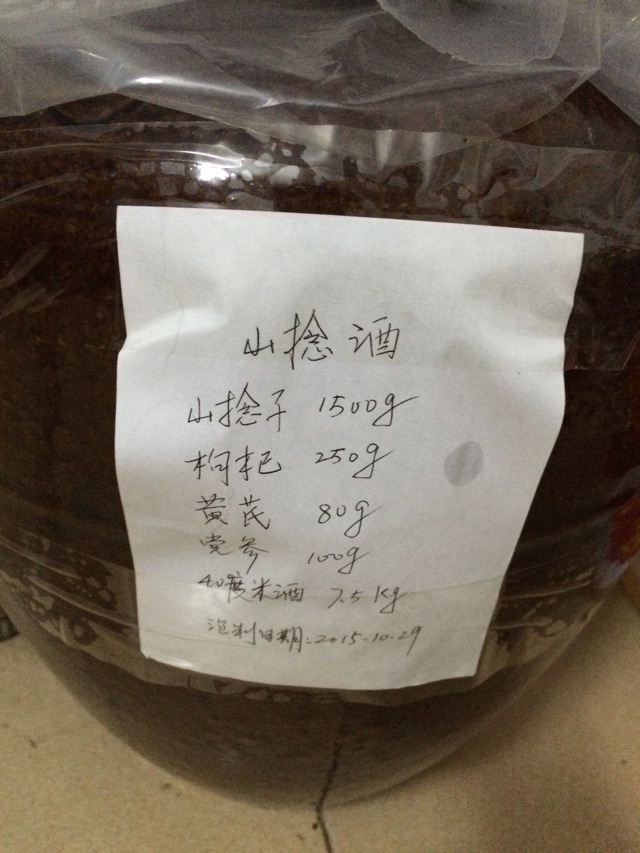 山捻酒
山捻子 1500g
枸杞 250g
黄芪 80g
党参 100g
40度米酒 7.5 kg
泡制日期:2015.10.29